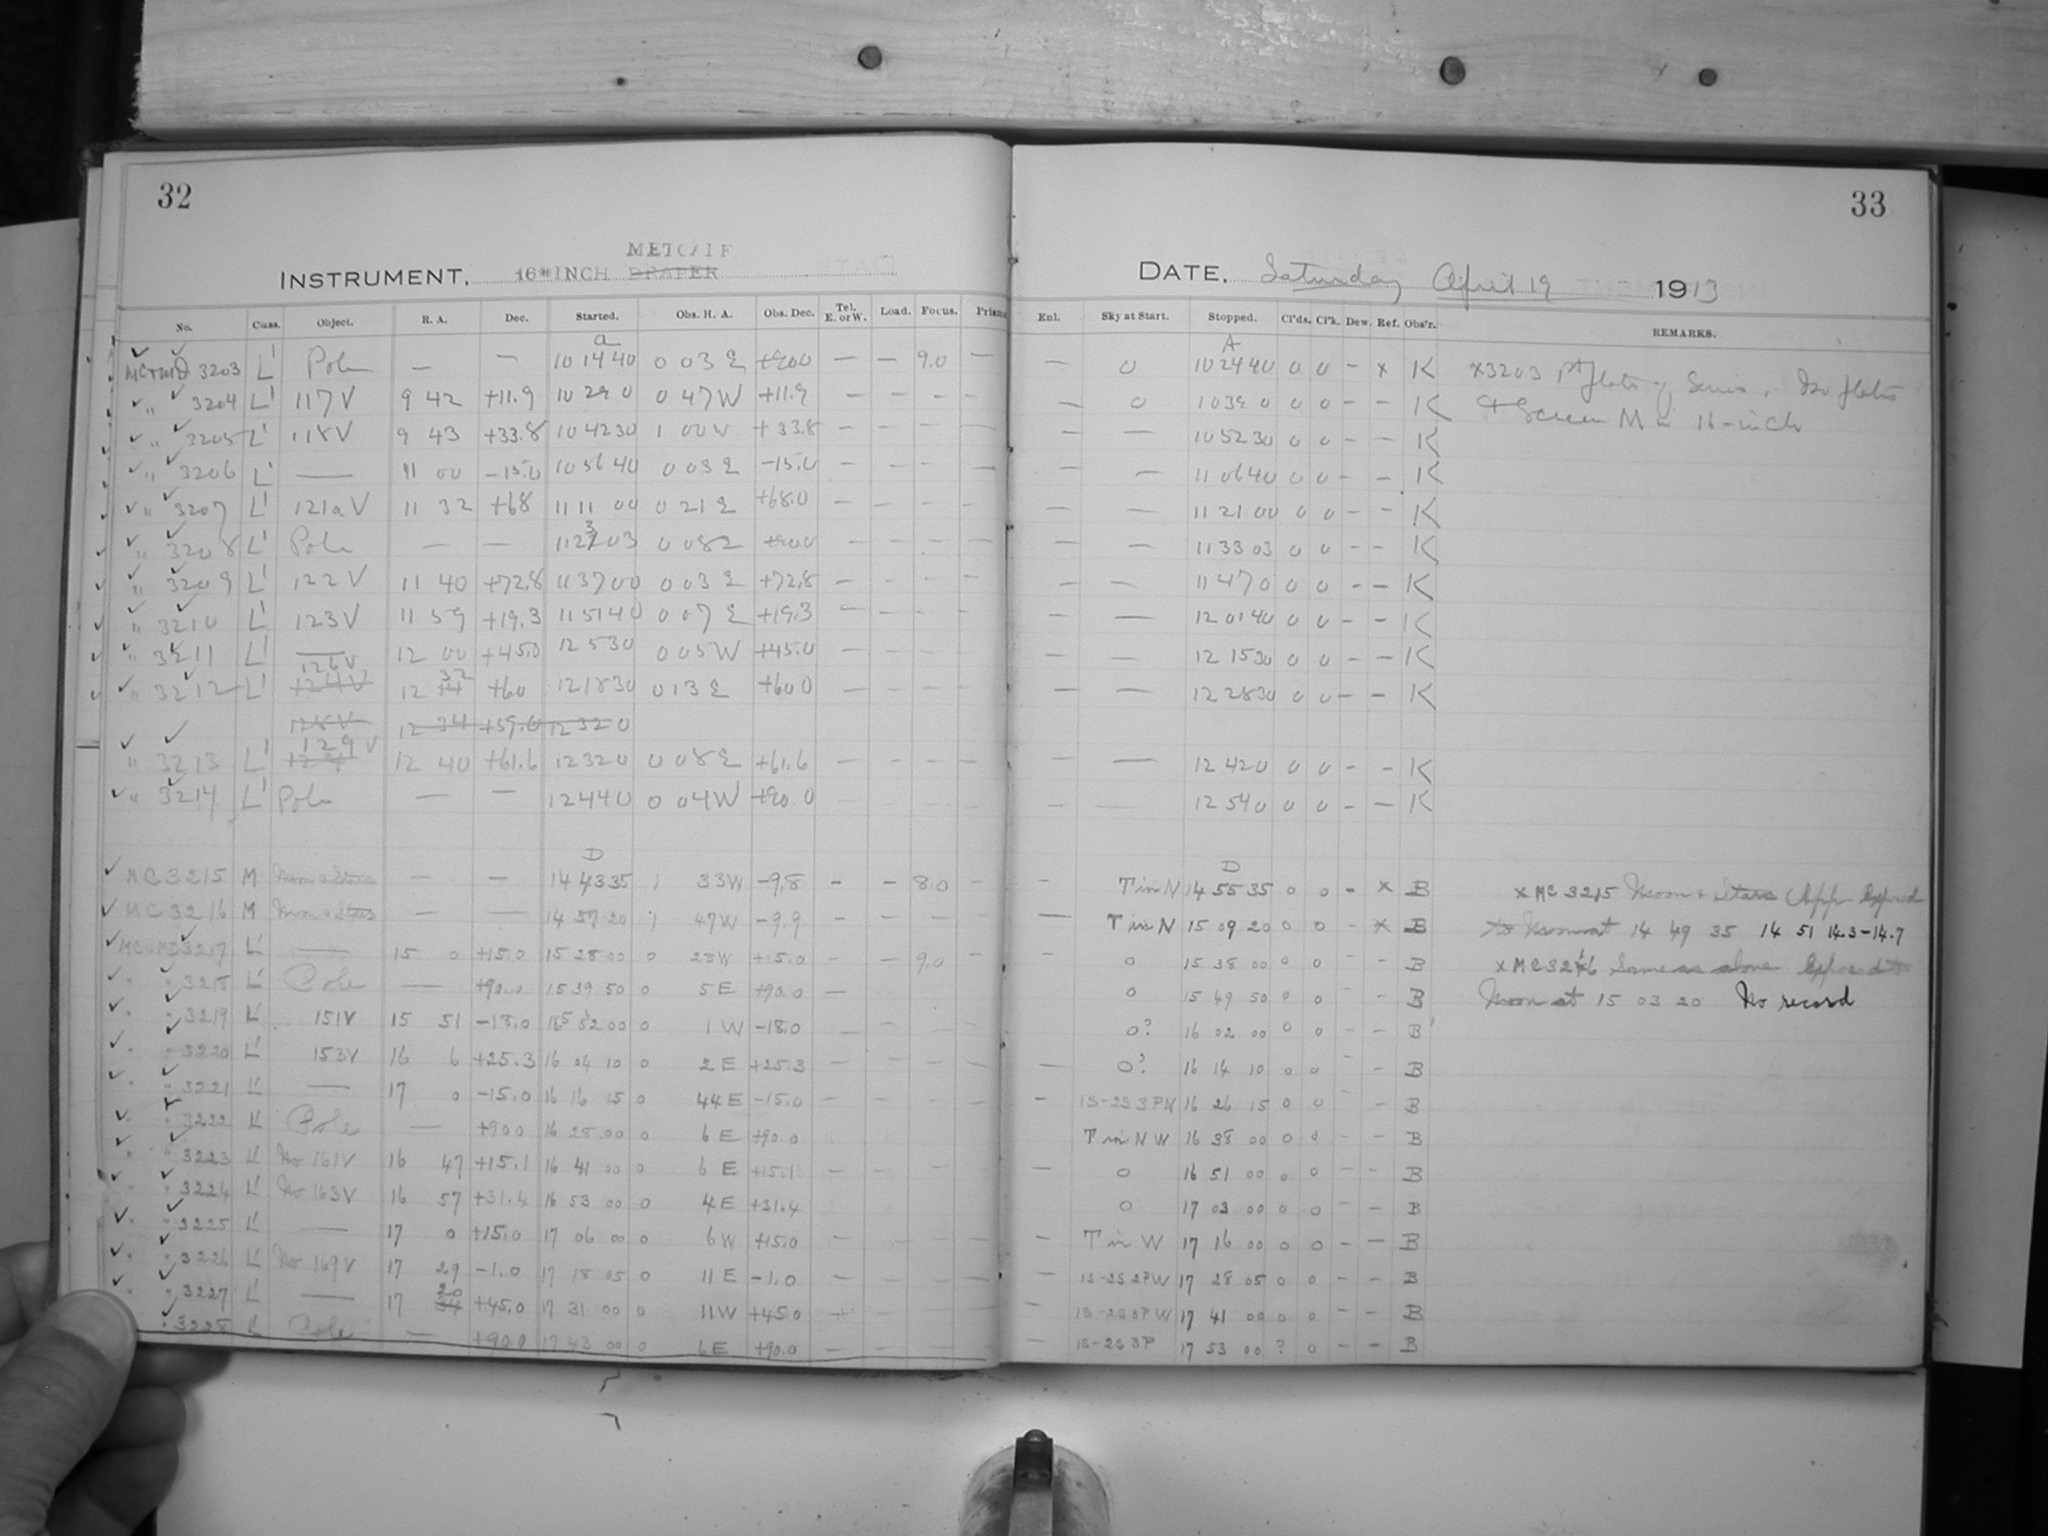 32
METCALF
INSTRUMENT, 16 INCH DRAPER
No. Class. Object. R. A. Dec. Started. Obs. H. A. Obs. Dec. Tel. E. or W. Load. Focus. Prism
a
MC+MD 3203 L' Pole — — 10 14 40 0 03 E +90.0 — — 9.0 —
" 3204 L' 117V 9 42 +11.9 10 29 0 0 47 W +11.9 — — — —
" 3205 L' 118V 9 43 +33.8 10 42 30 1 00 W +33.8 — — — —
" 3206 L' — 11 00 -15.0 10 56 40 0 03 E -15.0 — — — —
" 3207 L' 121aV 11 32 +68 11 11 00 0 21 E +68.0 — — — —
" 3208 L' Pole — — 11 23 03 0 08 E +90.0 — — — —
" 3209 L' 122V 11 40 +72.8 11 37 00 0 03 E +72.8 — — — —
" 3210 L' 123V 11 59 +19.3 11 51 40 0 07 E +19.3 — — — —
" 3211 L' — 12 00 +45.0 12 5 30 0 05 W +45.0 — — — —
126V 32
" 3212 L' 124V 12 14 +60 12 18 30 0 13 E +60.0 — — — —
128V 12 34 +59.0 12 32 0
129V
" 3213 L' 12 40 +61.6 12 32 0 0 08 E +61.6 — — — —
" 3214 L' Pole — — 12 44 0 0 04 W +90.0 — — — —
D
MC 3215 M Moon & Stars — — 14 43 35 1 33 W -9.8 - - 8.0 -
MC 3216 M Moon & Stars — — 14 57 20 1 47 W -9.9
MC+MD 3217 L' — 15 0 +15.0 15 28 00 0 28 W +15.0 — — 9.0 —
" " 3218 L' Pole — +90.0 15 39 50 0 5 E +90.0 —
" 3219 L' 151V 15 51 -18.0 15 52 00 0 1 W -18.0 — — — —
" " 3220 L' 153V 16 6 +25.3 16 04 10 0 2 E +25.3 — — — —
" " 3221 L' — 17 0 -15.0 16 16 15 0 44 E -15.0 — — — —
" 3222 L' Pole — +90.0 16 28 00 0 6 E +90.0 — —
" " 3223 L' No 161V 16 47 +15.1 16 41 00 0 6 E +15.1 — — — —
" " 3224 L' No 163V 16 57 +31.4 16 53 00 0 4 E +31.4
" " 3225 L' — 17 0 +15.0 17 06 00 0 6 W +15.0 — — — —
" " 3226 L' No 169V 17 29 -1.0 17 18 05 0 11 E -1.0 — — — —
20
" " 3227 L' — 17 34 +45.0 17 31 00 0 11 W +45.0 — — — —
" 3228 L' Pole — +90.0 17 43 00 0 6 E +90.0 — — — —
33
DATE, Saturday April 19 1913
Enl. Sky at Start. Stopped. Cl'ds. Cl'k. Dew. Ref. Obs'r. REMARKS.
A
— 0 10 24 40 0 0 - x K x3203 1st plate of Series, plates
— 0 10 39 0 0 0 - - K + Screen M in 16-inch
— — 10 52 30 0 0 - - K
— — 11 06 40 0 0 - - K
— — 11 21 00 0 0 - - K
— — 11 33 03 0 0 - - K
— — 11 47 0 0 0 - - K
— — 12 01 40 0 0 - - K
— — 12 15 30 0 0 - - K
— — 12 28 30 0 0 - - K
— — 12 42 0 0 0 - - K
— — 12 54 0 0 0 - - K
D
- T in N 14 55 35 0 0 - x B x MC 3215 Moon + Stars (App. Exposed
— T in N 15 09 20 0 0 - x B to Moon at 14 49 35 14 51 14.3-14.7
- 0 15 38 00 0 0 - - B x MC 3216 Same as above Exposed to
0 15 49 50 0 0 - - B Moon at 15 03 20 No record
0? 16 02 00 0 0 - - B
— 0? 16 14 10 0 0 - - B
- 1S-2S 3PN 16 26 15 0 0 - - B
T in N W 16 38 00 0 0 - - B
— 0 16 51 00 0 0 - - B
0 17 03 00 0 0 - - B
- T in W 17 16 00 0 0 - - B
— 1S-2S 2PW 17 28 05 0 0 - - B
- 1S-2S 3PW 17 41 00 0 0 - - B
- 1S-2S 3P 17 53 00 ? 0 - - B